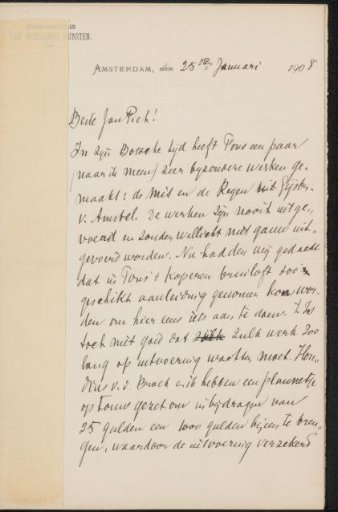 DER BEELDENDE KUNSTEN.
AMSTERDAM, den 25sten Januari 1908
Beste Jan Piet!
In zijn Bossche tijd heeft Tons een paar
(naar ik meen) zeer byzondere werken ge-
maakt: de Mis en de Reyen uit Gijsbr.
v. Amstel. De werken zijn nooit uitge-
voerd en zouden wellicht niet gauw uit-
gevoerd worden. Nu hadden wij gedacht
dat in Tons's koperen bruiloft
geschikt aanleiding genomen kon wor-
den om hier eens iets aan te doen. 't Is
toch niet goed dat zulk werk zoo
lang op uitvoering wachten moet.
v. d. en ik hebben een plannetje
op touw gezet om in bijdragen van
25 gulden een 1000 gulden bijeen te bren-
gen, waardoor de uitvoering verzekerd